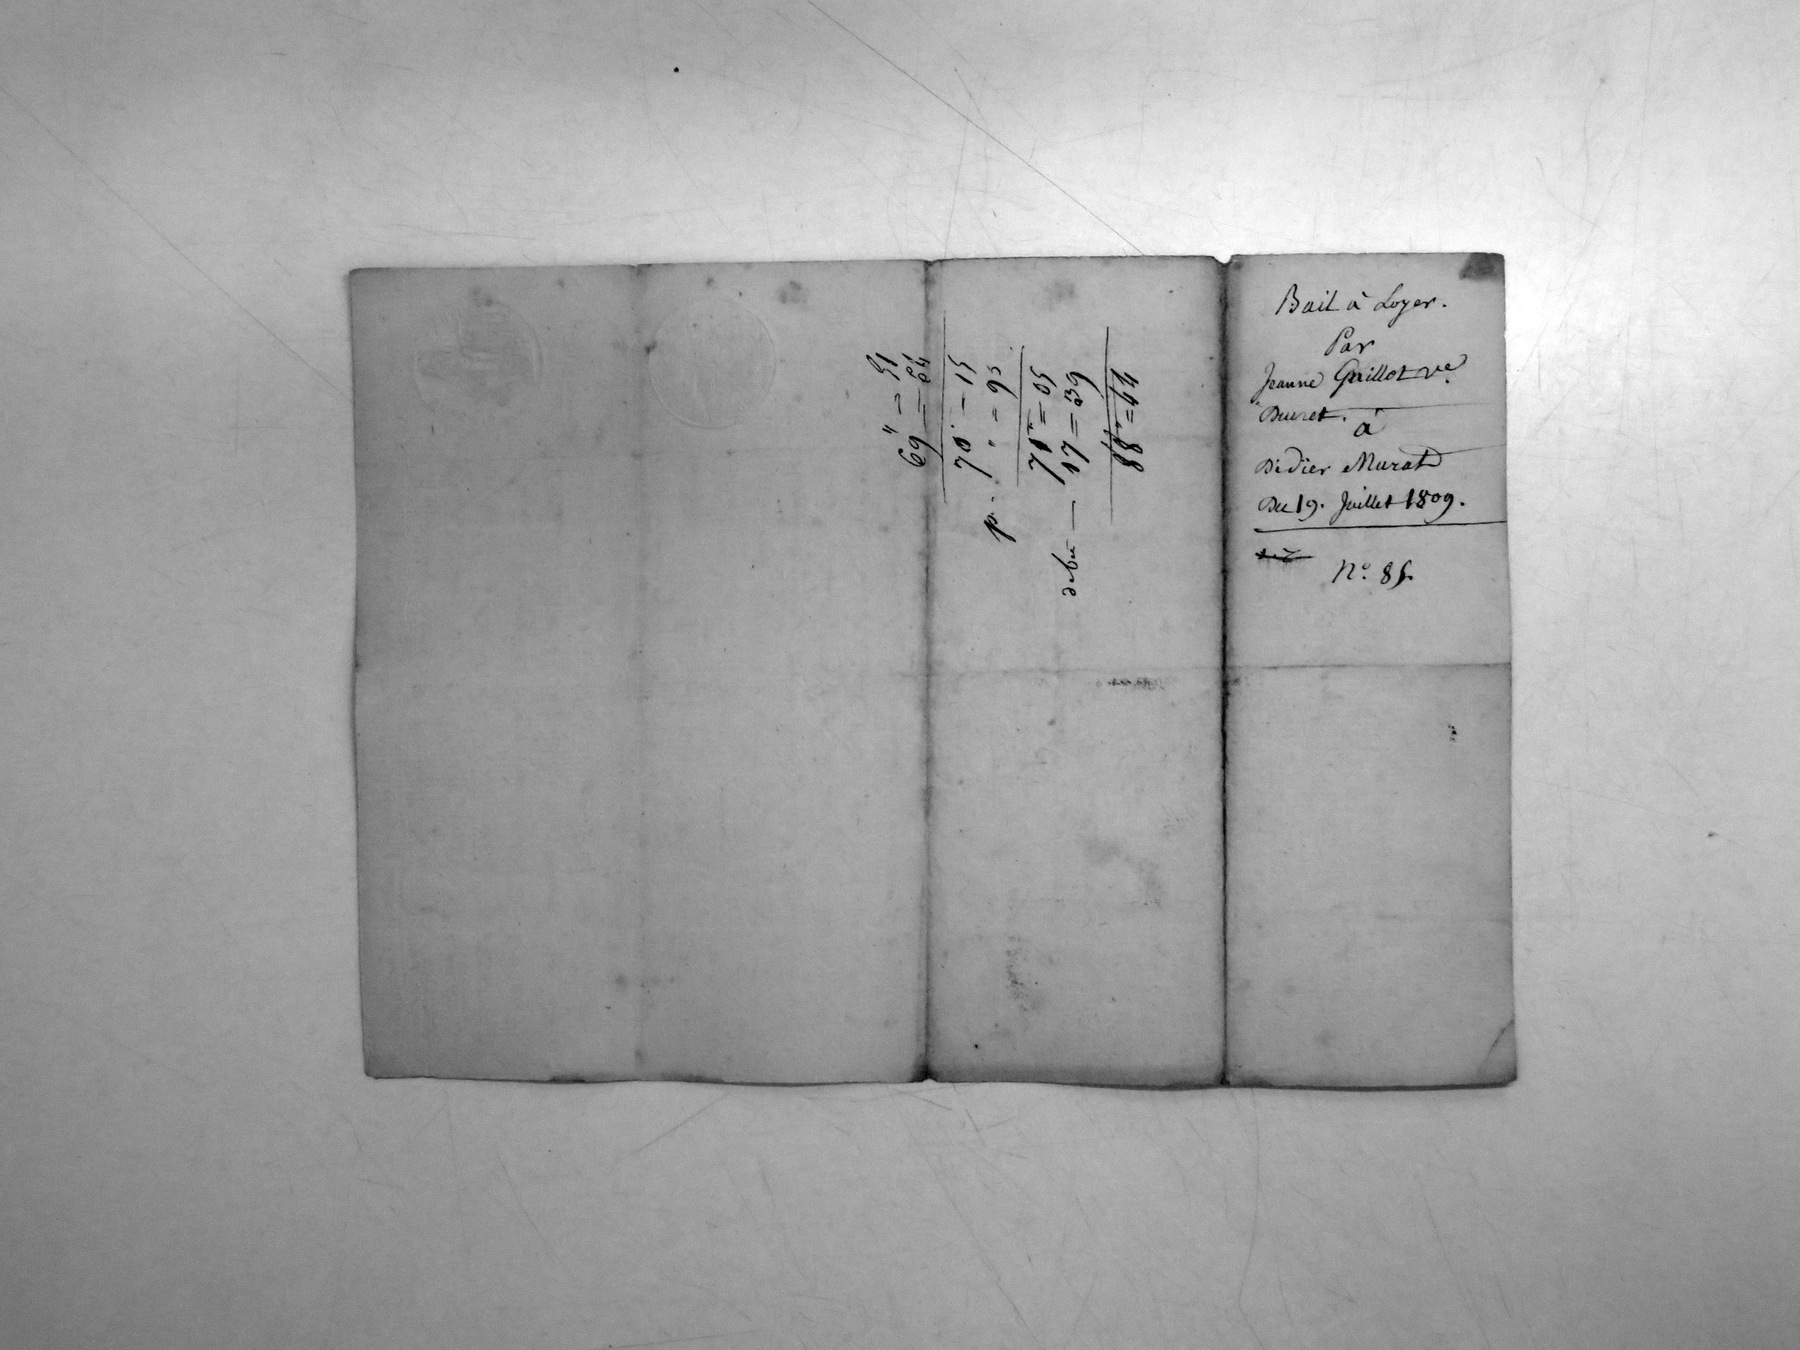 Bail à Loyer.
Par
Jeanne Guillot ve
Ducret.
à
Didier Murat
Du 19. Juillet 1809.
No. 85.
" = 51
69 = 64
70. = 15
p. " = 95
71 = 05
debu — 17 = 39
88 = 44